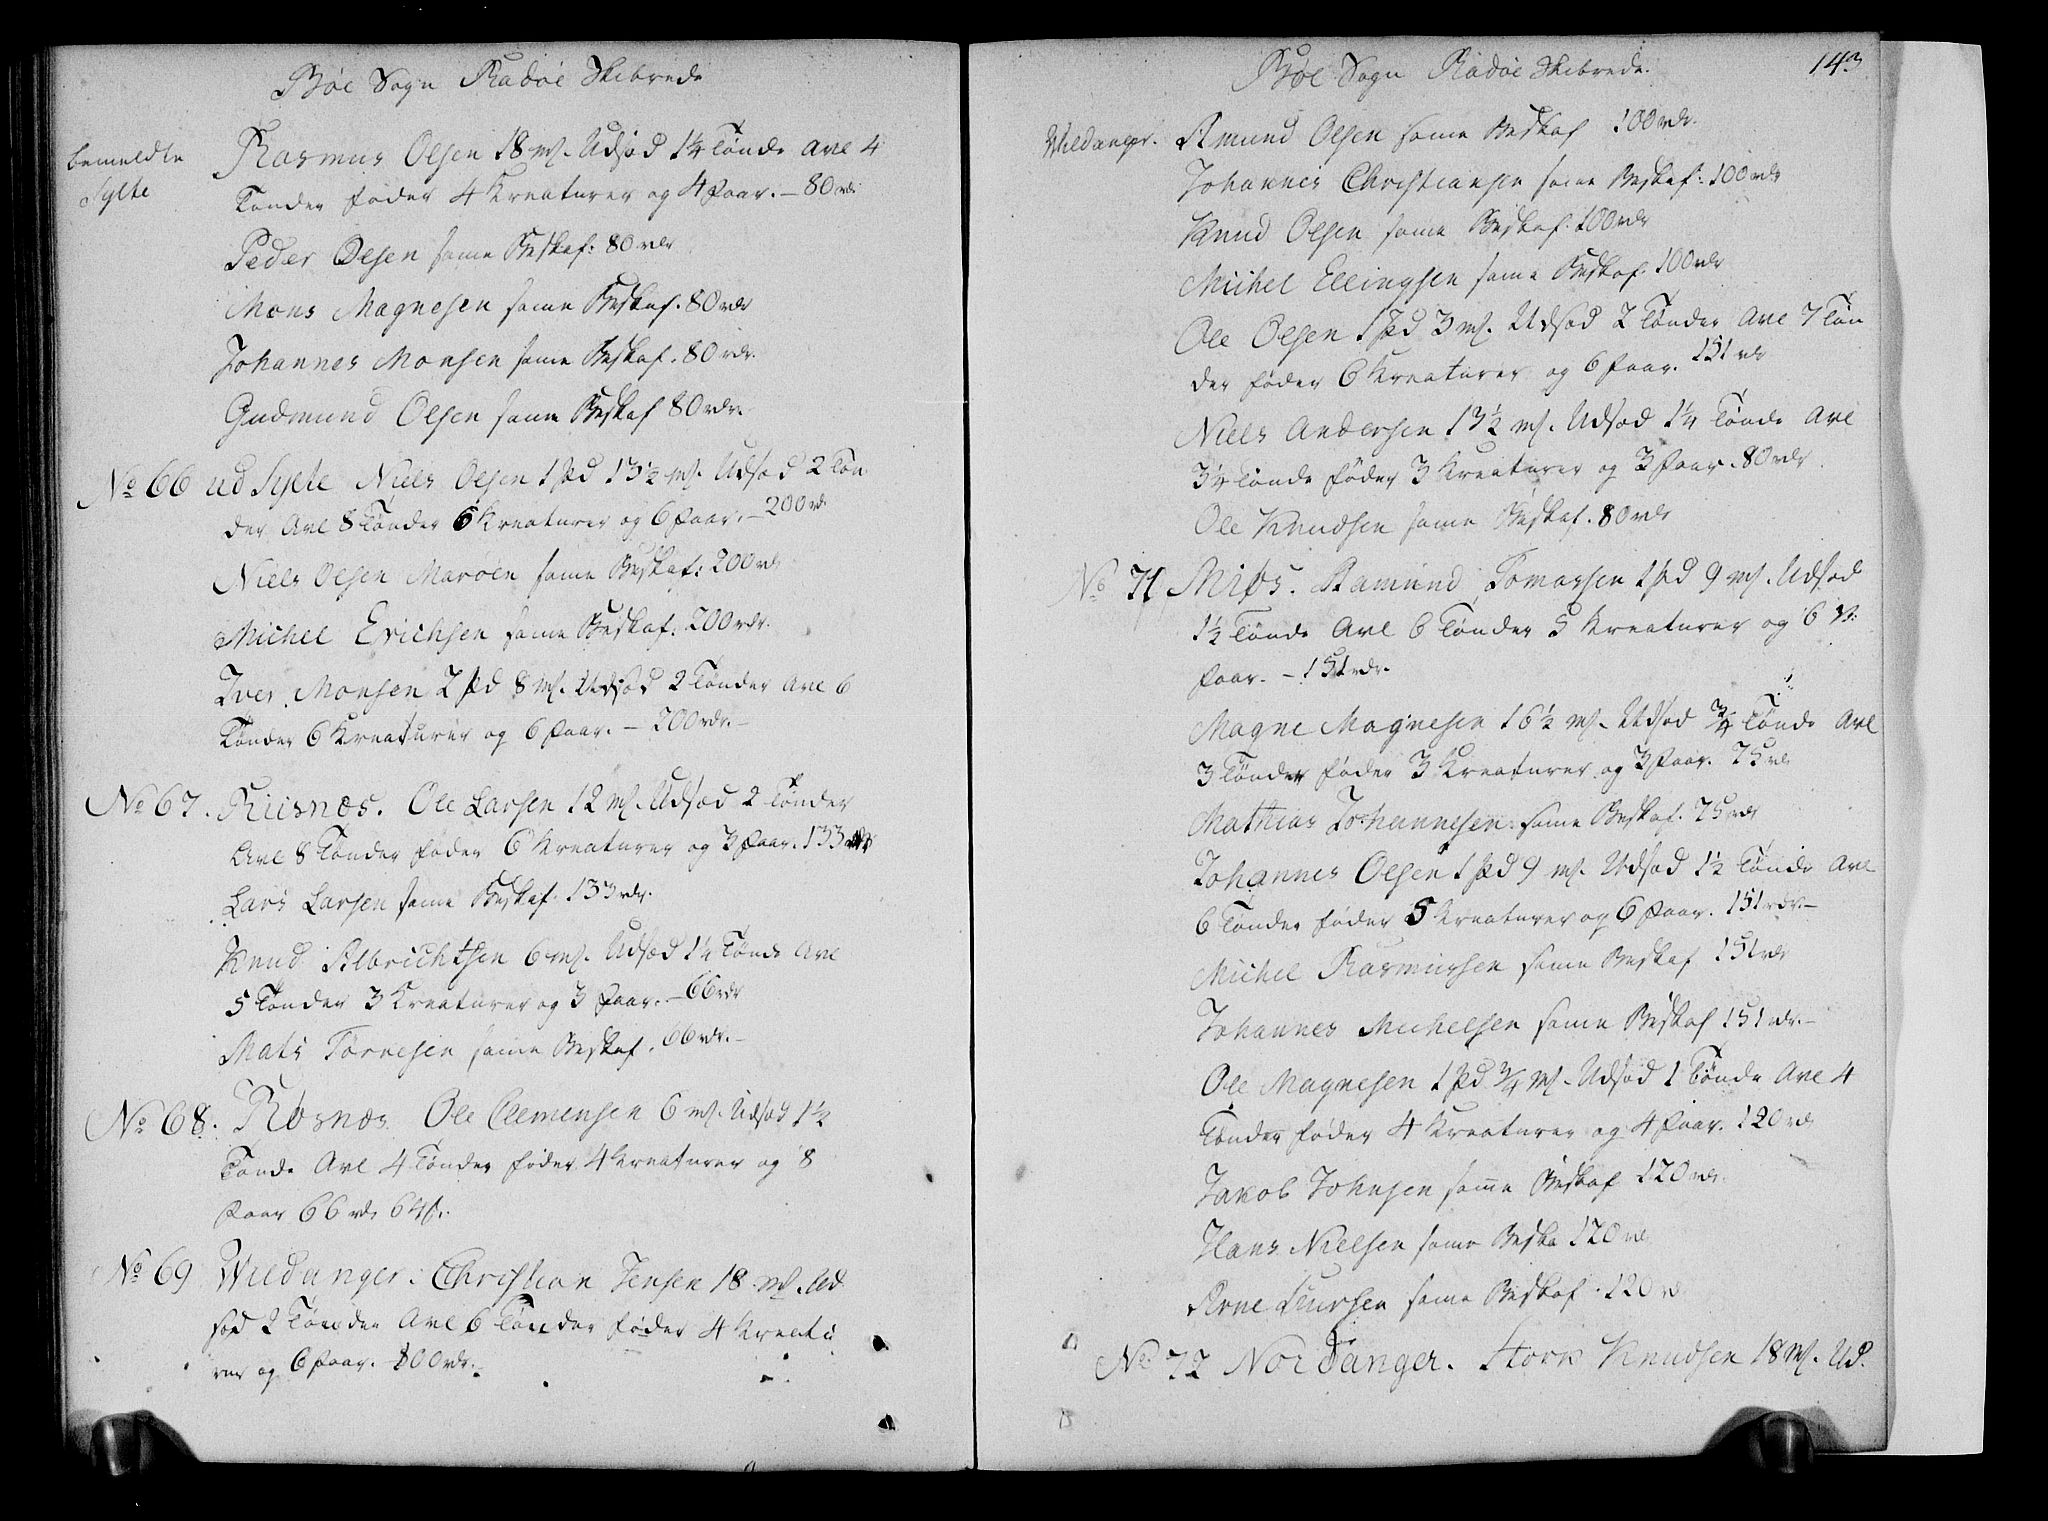 Bøe Sogn Radøe Skibrede
bemeldte
Sylte
Rasmus Olsen 18 mß. Udsæd 1¼ Tønde Avl 4
Tønder føder 4 Kreaturer og 4 Faar. – 80 rdr
Peder Olsen same Beskaf: 80 rdr
Mons Magnesen same Beskaf. 80 rdr
Johannes Monsen same Beskaf. 80 rdr.
Gudmund Olsen same Beskaf 80 rdr.
No 66 ud Sylte Niels Olsen 1 pd 13½ mß. Udsæd 2 Tøn
der Avl 8 Tønder 6 Kreaturer og 6 Faar. – 200 rdr
Niels Olsen Marøen same Beskaf: 200 rdr
Michel Erichsen same Beskaf. 200 rdr.
Iver Monsen 2 pd 8 mß. Udsæd 2 Tønder Avl 6
Tønder 6 Kreaturer og 6 Faar. – 200 rdr. –
No 67. Riisnæs. Ole Larsen 12 mß. Udsæd 2 Tønder
Avl 8 Tønder føder 6 Kreaturer og 3 Faar. 133 rdr
Lars Larsen same Beskaf. 133 rdr.
Knud Albrichtsen 6 mß. Udsæd 1¼ Tønde Avl
5 Tønder 3 Kreaturer og 3 Faar. – 66 rdr
Mats Tørresen same Beskaf. 66 rdr. –
No 68. Rosnæs Ole Clemensen 6 mß. Udsæd 1½
Tønde Avl 4 Tønder føder 4 Kreaturer og 8
Faar 66 rdr 64 ß.
No 69 Vildanger. Christian Jensen 18 mß. Ud
sæd 2 Tønder Avl 6 Tønder føder 4 Kreatu
rer og 6 Faar. 100 rdr.
Bøe Sogn Radøe Skibrede. 143
Vildanger. Amund Olsen same Beskaf 100 rdr.
Johannes Christiansen same Beskaf: 100 rdr
Knud Olsen same Beskaf. 100 rdr
Michel Ellingsen same Beskaf. 100 rdr
Ole Olsen 1 pd 3 mß. Udsæd 2 Tønder Avl 7 Tøn
der føder 6 Kreaturer og 6 Faar. 151 rdr
Niels Andersen 13½ mß. Udsæd 1¼ Tønde Avl
3¼ Tønde føder 3 Kreaturer og 3 Faar. 80 rdr
Ole Knudsen same Beskaf. 80 rdr
No 71 Miøs. Ramund Tomassen 1 pd 9 mß. Udsæd
1½ Tønde Avl 6 Tønder 5 Kreaturer og 6
Faar. – 151 rdr.
Magne Magnesen 16½ mß. Udsæd ¾ Tønde Avl
3 Tønder føder 3 Kreaturer og 3 Faar. 75 rdr
Mathias Johannesen same Beskaf. 75 rdr
Johannes Olsen 1 pd 9 mß. Udsæd 1½ Tønde Avl
6 Tønder føder 5 Kreaturer og 6 Faar. 151 rdr. –
Michel Rasmussen same Beskaf 151 rdr
Johannes Michelsen same Beskaf 151 rdr. –
Ole Magnesen 1 pd ¾ mß. Udsæd 1 Tønde Avl 4
Tønder føder 4 Kreaturer og 4 Faar. 120 rdr
Jakob Johnsen same Beskaf 120 rdr.
Hans Nielsen same Beska 120 rdr
Arne same Beskaf. 120 rd
No 72 Nordanger. Knudsen 18 mß. Ud.